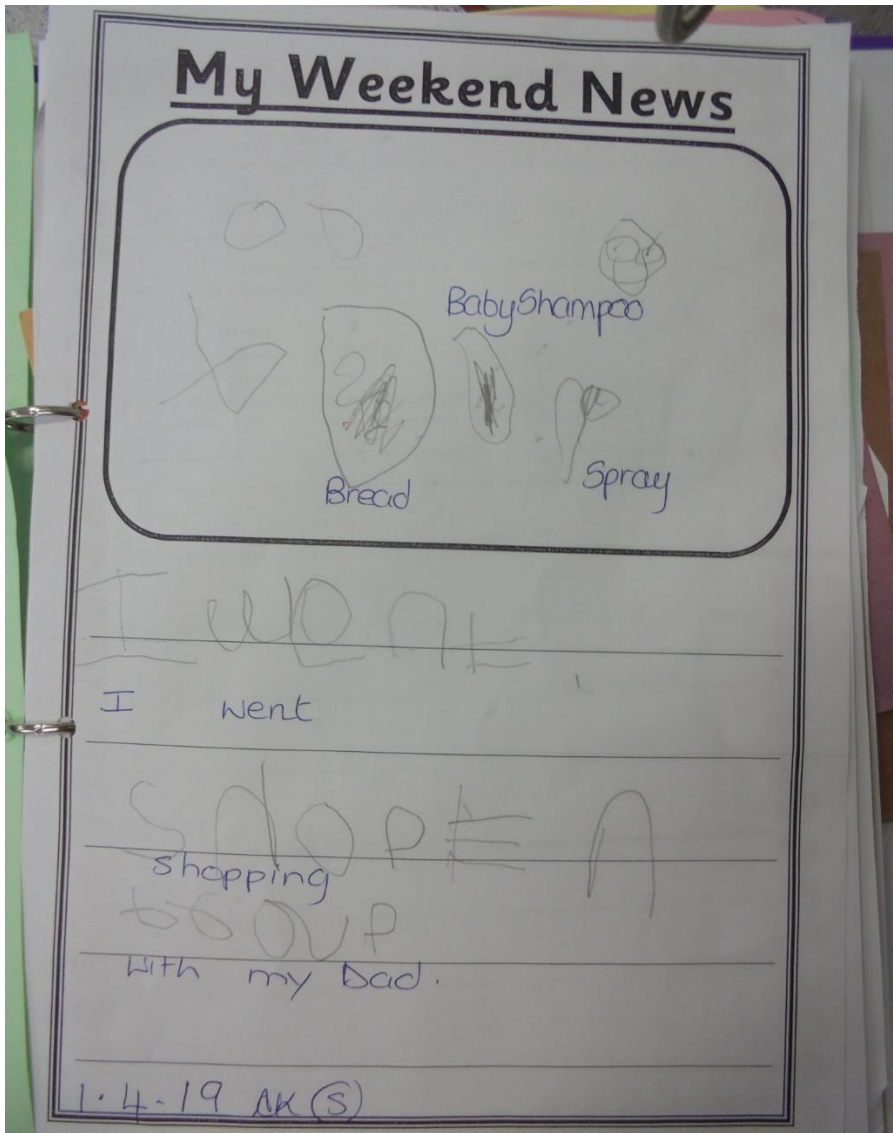 My Weekend News
Baby Shampoo
Bread
Spray
I went
I went
shopping
with my Dad.
1.4.19 AK (S)